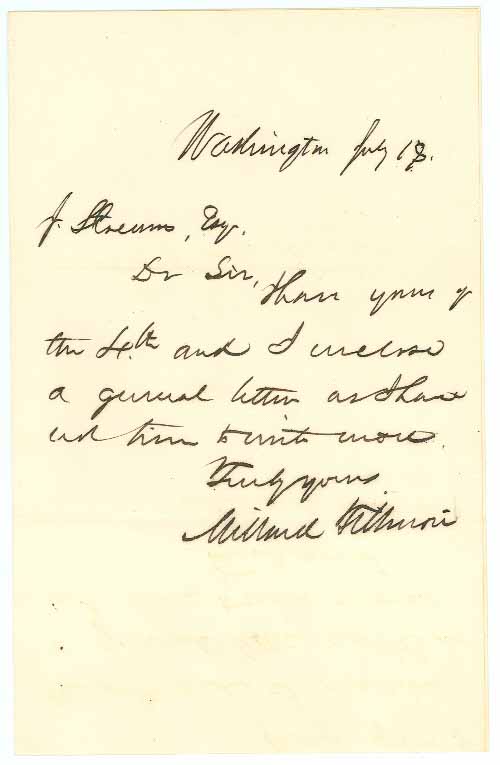 Washington July 18.
J. Stevens, Esq.
Dr Sir,
I have yours of
the 4th and I enclose
a general letter as I have
not time to write more.
Truly yours
Millard Fillmore